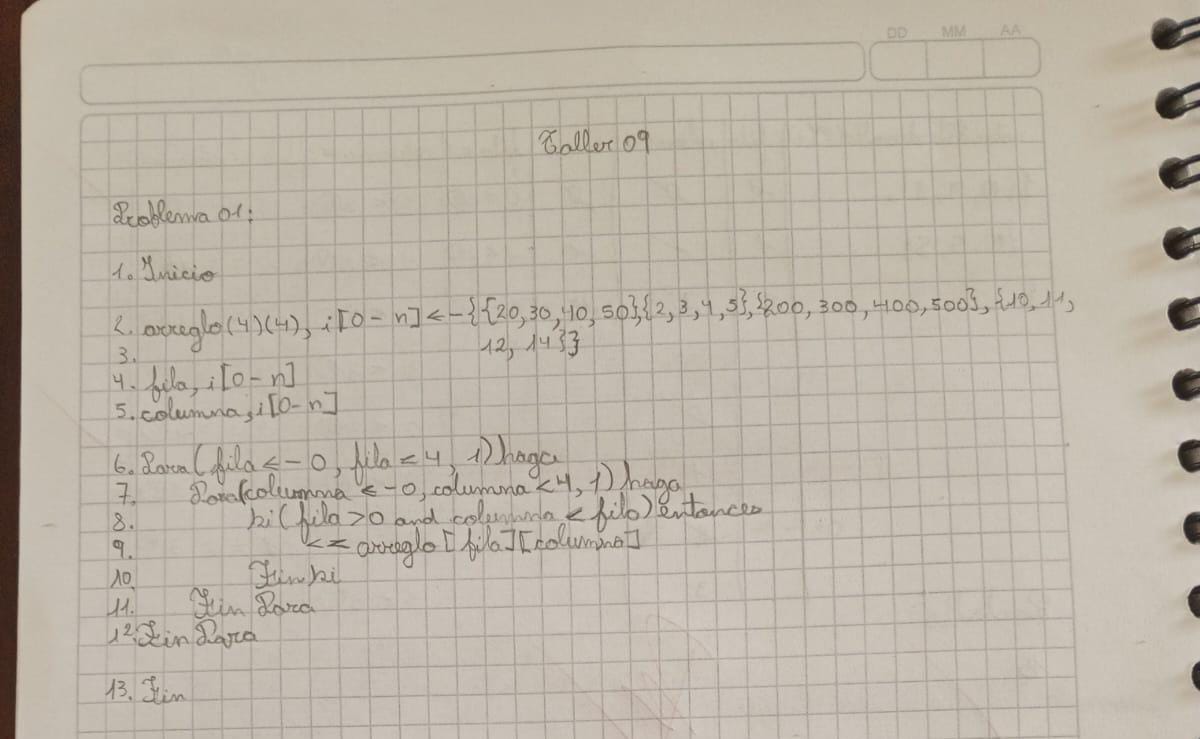 DD MM AA
Taller 09
Problema 01:
1. Inicio
2. arreglo(4)(4), i[0-n] <- {{20, 30, 40, 50}{2, 3, 4, 5}, {200, 300, 400, 500}, {10, 11,
3. 12, 14}}
4. fila, i[0-n]
5. columna, i[0-n]
6. Para(fila <- 0, fila < 4, 1) haga
7. Para(columna <- 0, columna < 4, 1) haga
8. si(fila > 0 and columna < fila) entonces
9. <= arreglo[fila][columna]
10. Fin si
11. Fin Para
12. Fin Para
13. Fin